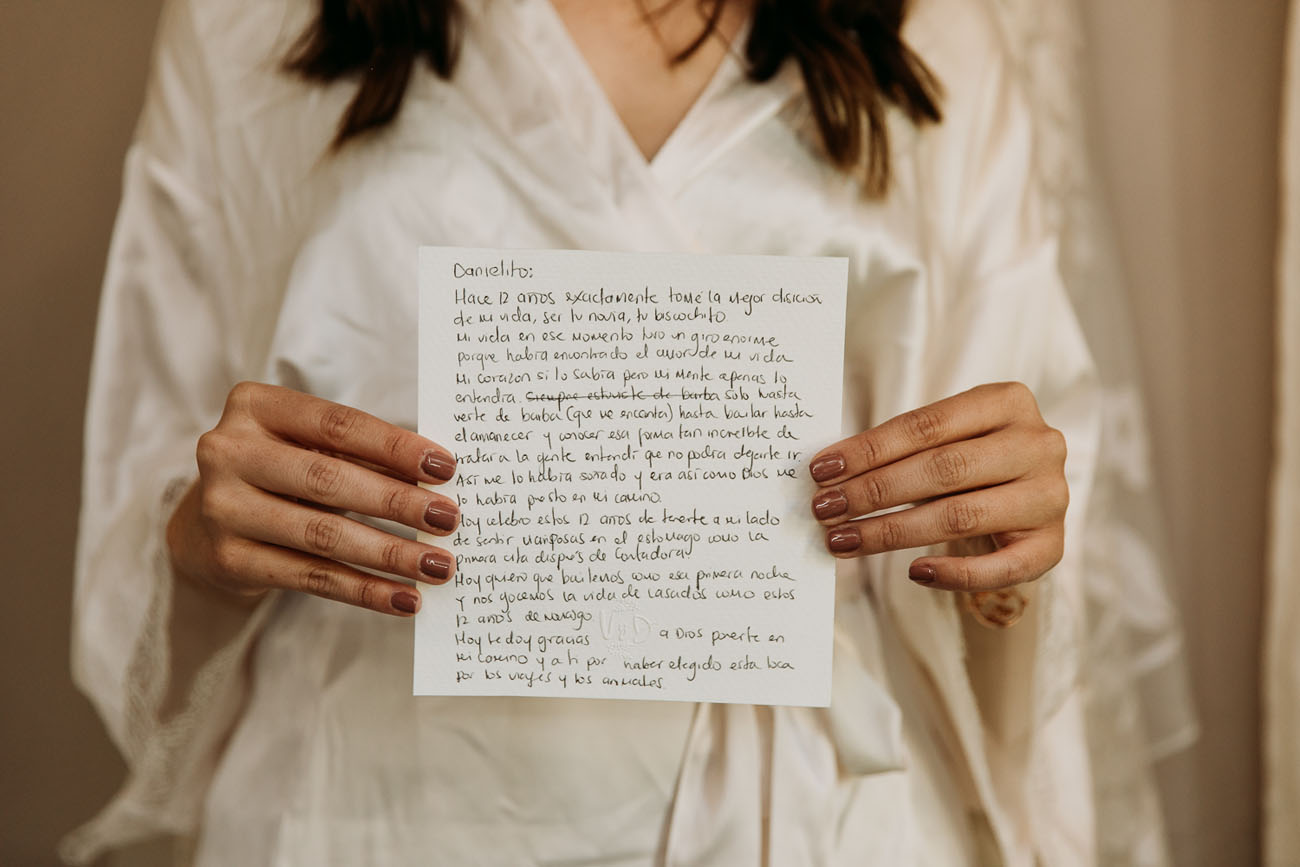 Danielito:
Hace 12 años exactamente tomé la mejor disición
de mi vida, ser tu novia, tu biscochito
Mi vida en ese momento tuvo un giro enorme
porque habia encontrado el amor de mi vida
Mi corazon si lo sabia pero mi mente apenas lo
entendia. Siempre estuviste de barba solo hasta
verte de barba (que me encanta) hasta bailar hasta
el amanecer y conocer esa forma tan increible de
tratar a la gente entendi que no podia dejarte ir.
Asi me lo habia soñado y era asi como Dios me
lo habia puesto en mi camino.
Hoy celebro estos 12 años de tenerte a mi lado
de sentir mariposas en el estomago como la
primera cita dispués de Contadora
Hoy quiero que bailemos como esa primera noche
y nos gocemos la vida de casados como estos
12 años de noviazgo
V&D
Hoy te doy gracias a Dios ponerte en
mi camino y a ti por haber elegido esta loca
por los viajes y los animales.